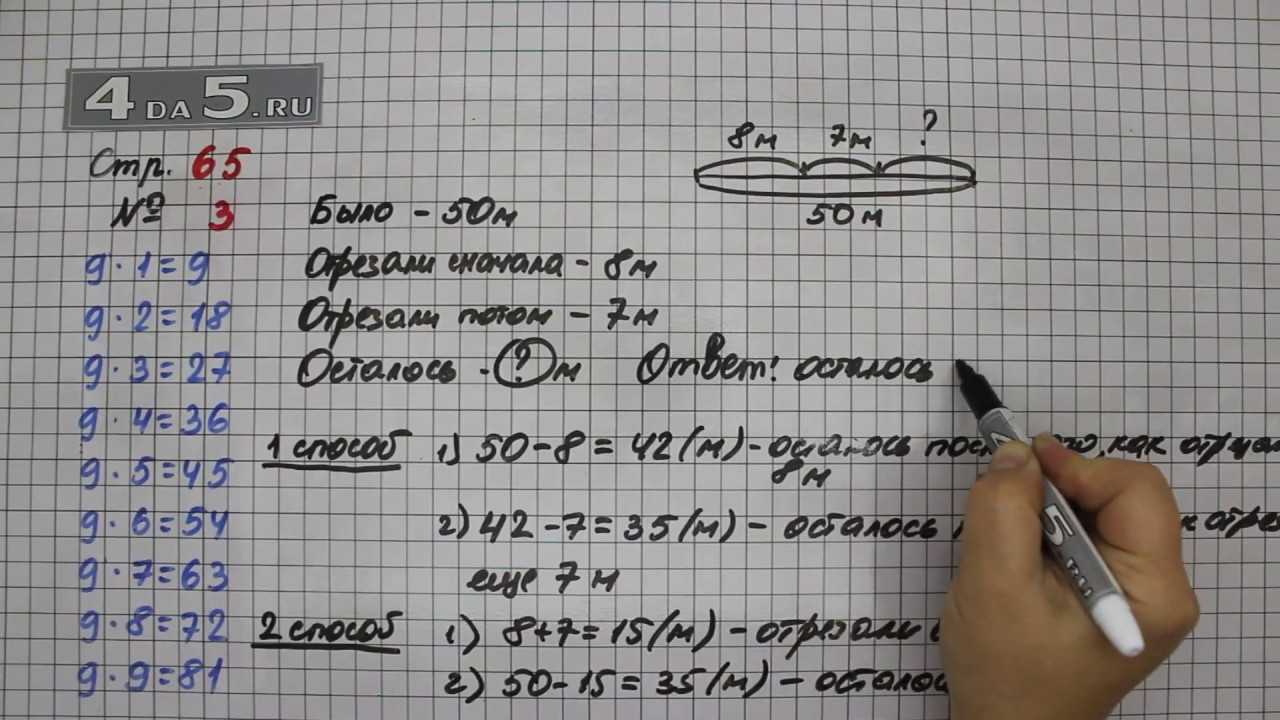 4DA5.RU
Стр. 65
№ 3
9·1=9
9·2=18
9·3=27
9·4=36
9·5=45
9·6=54
9·7=63
9·8=72
9·9=81
8м 7м ?
50м
Было - 50м
Отрезали сначала - 8м
Отрезали потом - 7м
Осталось - ? м Ответ: осталось
1 способ 1) 50-8=42(м) - осталось как
8м
2) 42-7=35(м) - осталось
еще 7м
2 способ 1) 8+7=15(м) - отрезали
2) 50-15=35(м) -
5